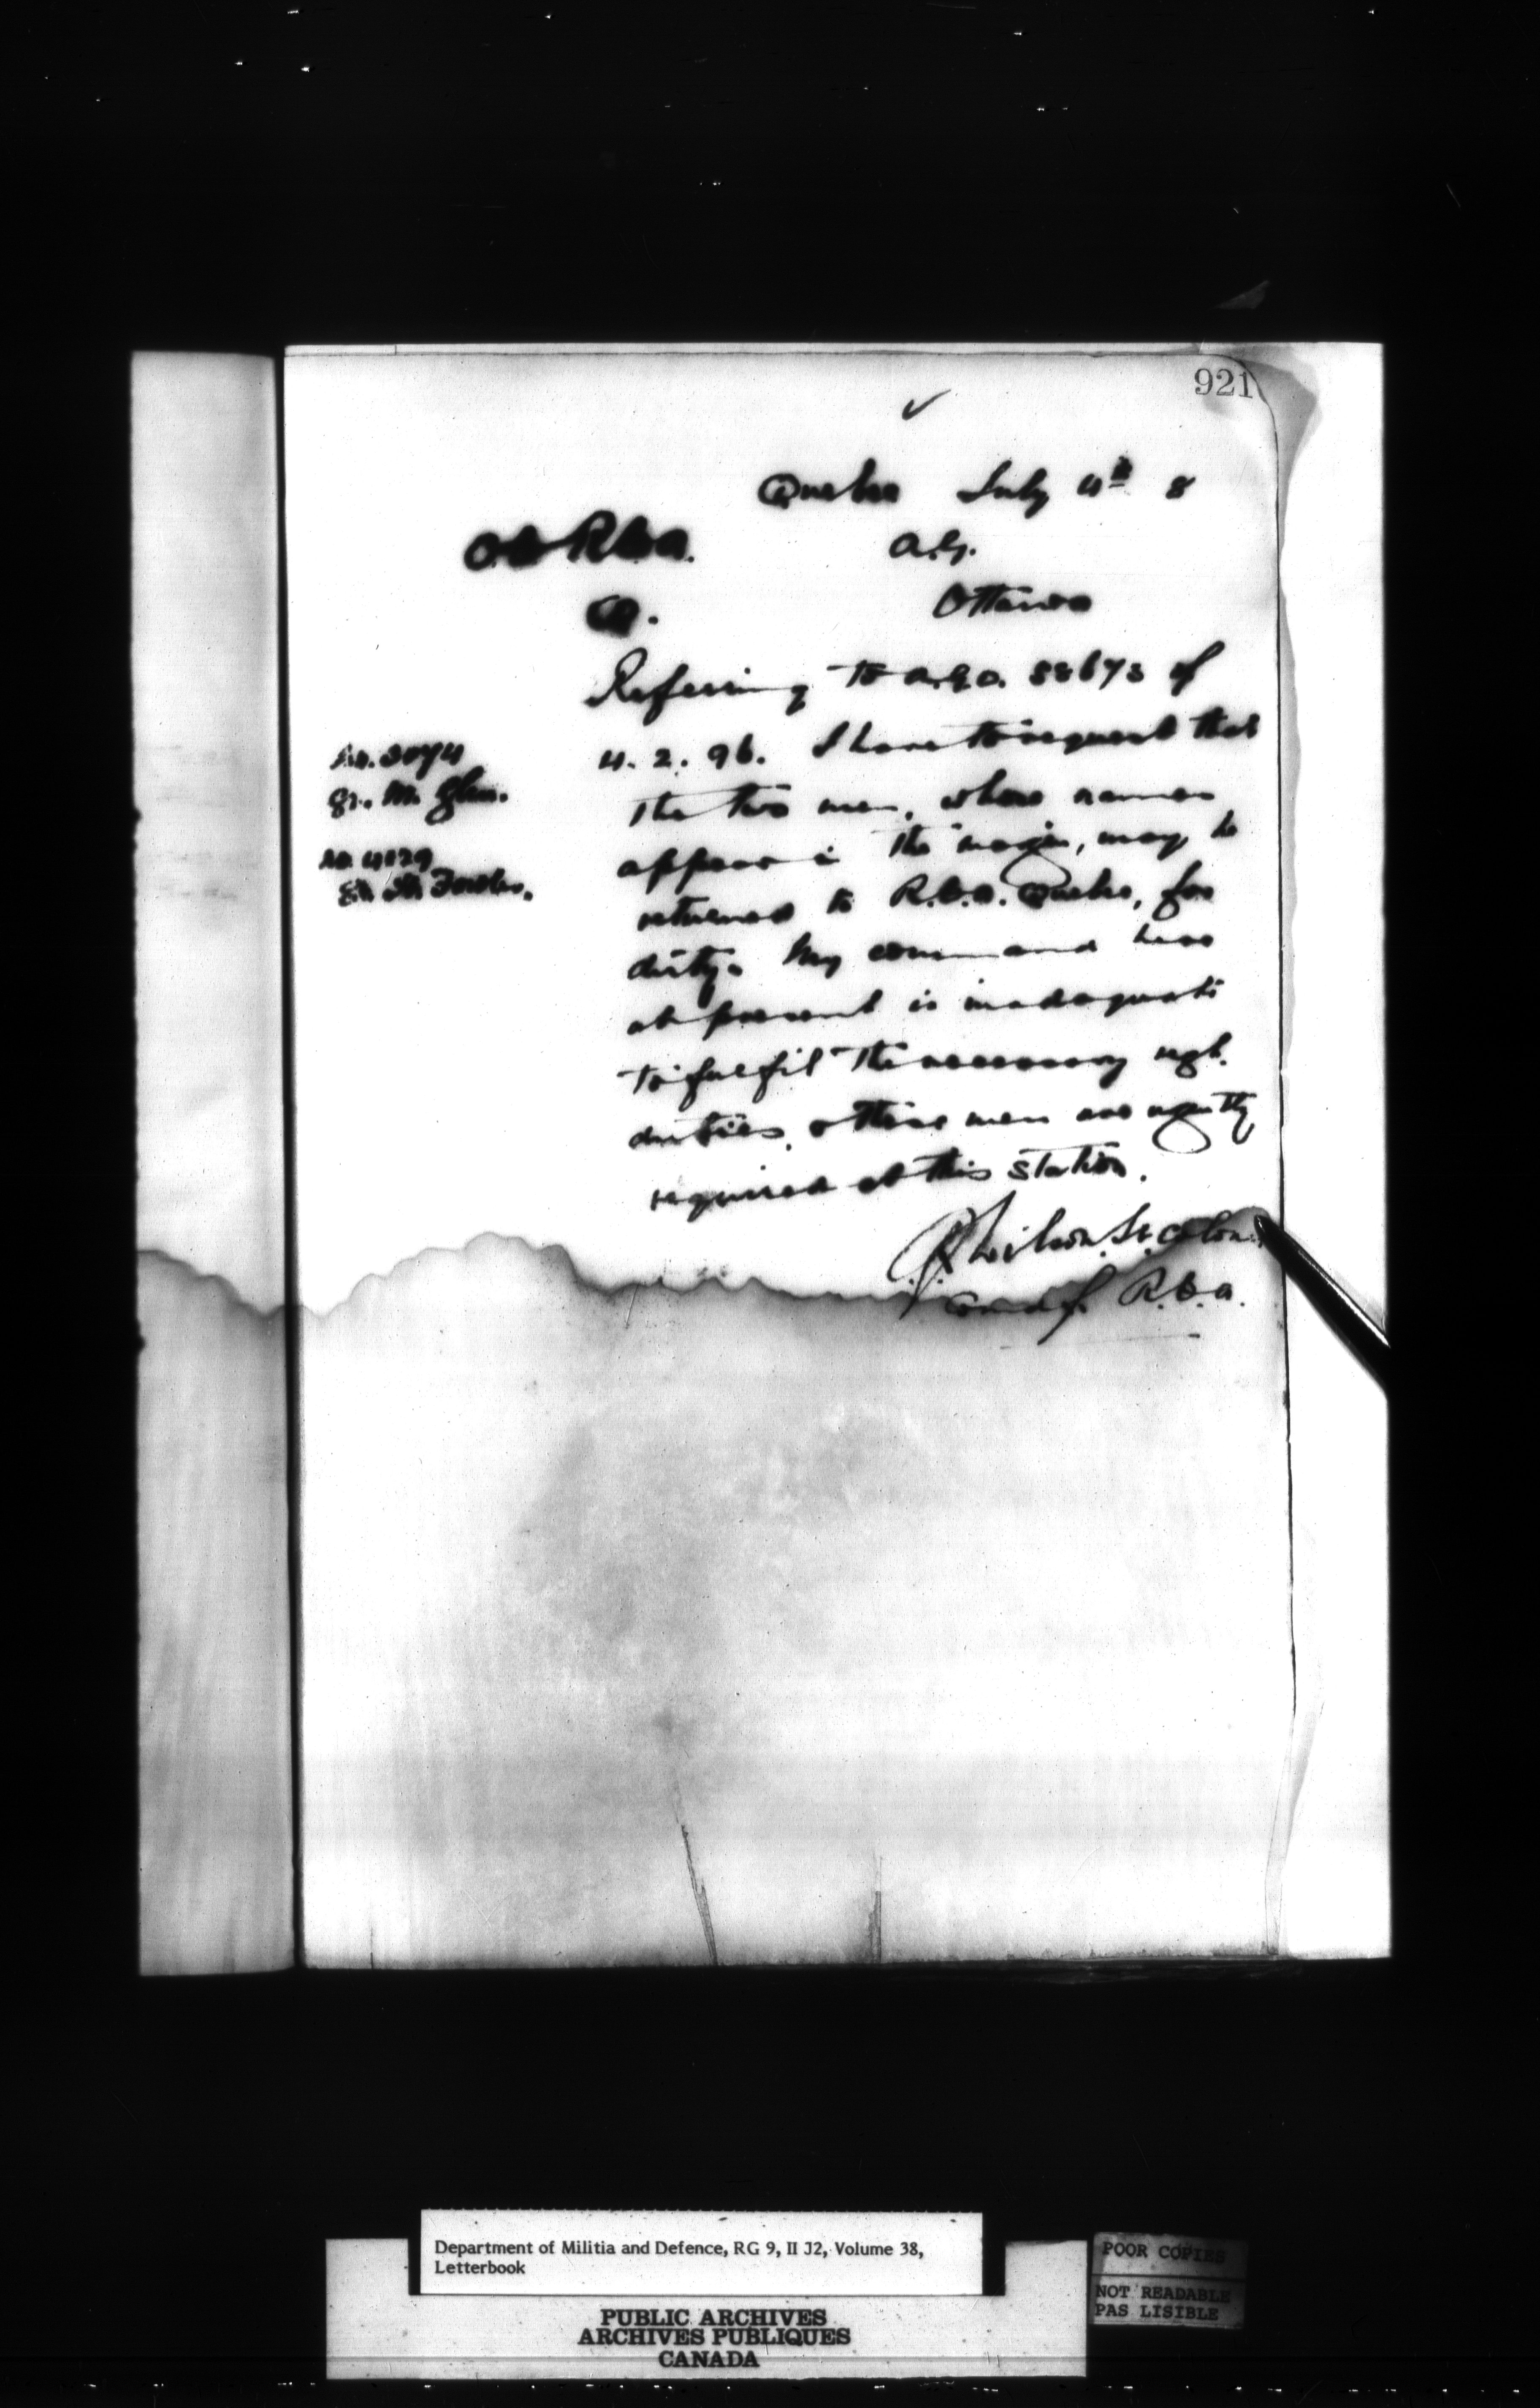 921
Quebec July 4th 8
O.C. R.C.A. A.G.
Q. Ottawa
Referring to A.G.O. 58673 of
4. 2. 96. I have to request that
the two men, whose names
appear in the margin, may be
returned to R.C.A. Quebec, for
duty. My command here
at present is inadequate
to fulfil the necessary regtl.
duties, & these men are urgently
required at this station.
No. 2074
Gr. M. Glen.
No. 4129
Wilson. Lt. Colon
Comdg. R.C.A.
Department of Militia and Defence, RG 9, II J2, Volume 38,
Letterbook
PUBLIC ARCHIVES
ARCHIVES PUBLIQUES
CANADA
POOR COPIES
NOT READABLE
PAS LISIBLE